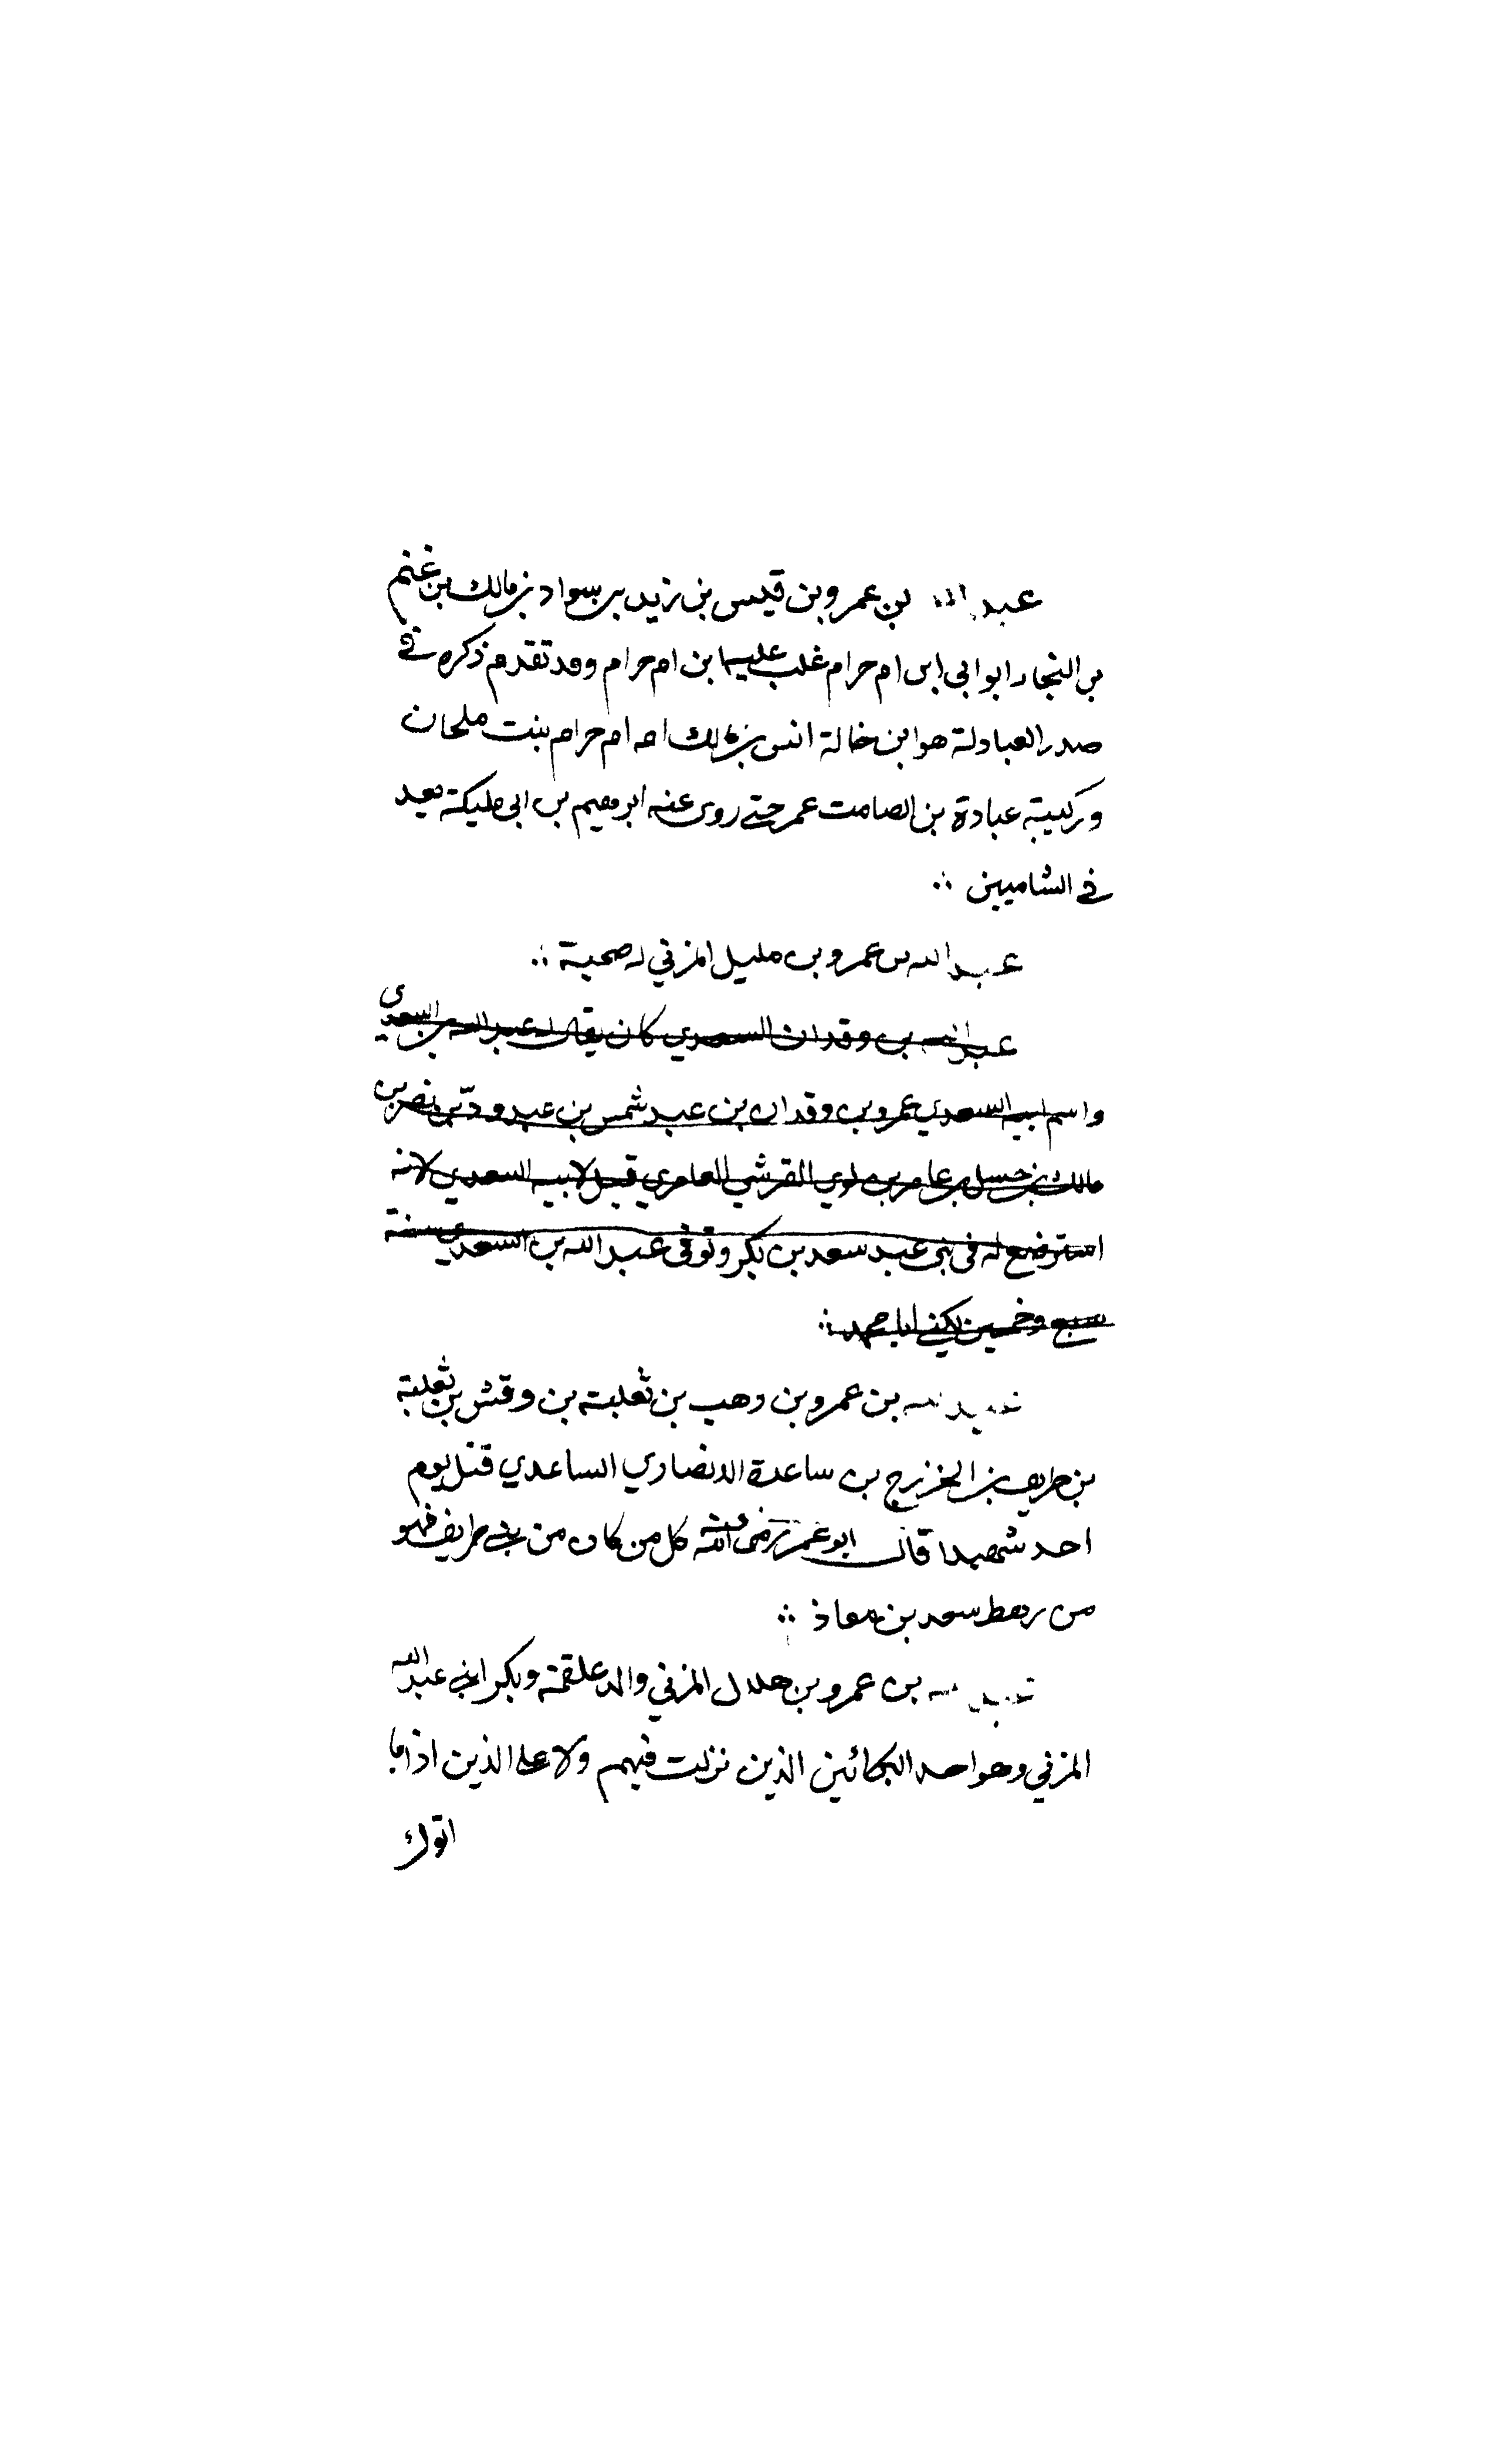 عبد الله بن عمرو بن قيس بن زيد بن سواد بن مالك بن غنم
بن النجار ابو ابي ابن ام حرام غلب عليه ابن ام حرام وقد تقدم ذكره في
صدر العبادلة هو ابن خالة انس بن مالك امه ام حرام بنت ملحان
وربيبة عبادة بن الصامت عمر حتى روى عنه ابرهيم بن ابي عبلة يعد
في الشاميين
عبد الله بن عمرو بن مليل المزني له صحبة
عبد الله بن وقدان السعدي كان يقال له عبد الله بن السعدي
واسم ابيه السعدي عمرو بن وقدان بن عبد شمس بن عبد ودّ بن نصر بن
مالك بن حسل بن عامر بن لوي القرشي العامري قيل لابيه السعدي لانه
استرضع له في بني عبد سعد بن بكر وتوفي عبد الله بن السعدي سنة
سبع وخمسين يكنى ابا محمد
عبد الله بن عمرو بن وهب بن ثعلبة بن وقش بن ثعلبة
بن طريف بن الخزرج بن ساعدة الانصاري الساعدي قتل يوم
احد شهيدا قال ابو عمر رضي الله عنه كل من كان من بني طريف فهو
من رهط سعد بن معاذ
عبد الله بن عمرو بن هلال المزني والد علقمة وبكر ابني عبد الله
المزني وهو احد البكائين الذين نزلت فيهم ولا على الذين اذا ما
اتوك